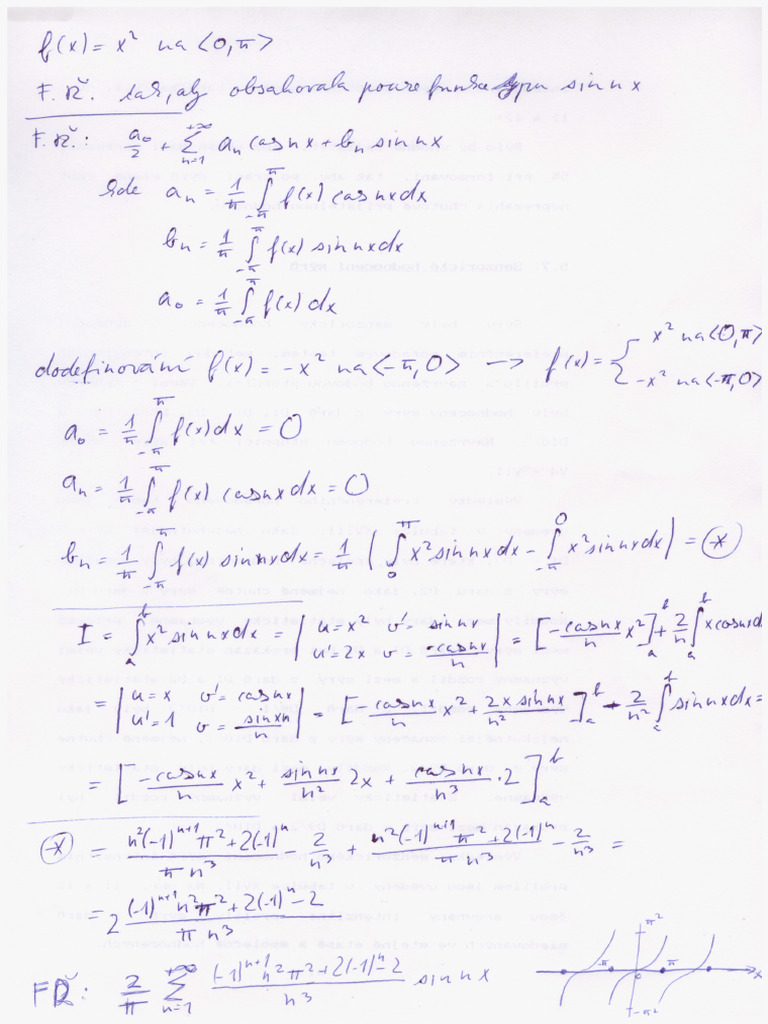 f(x) = x² na <0,π>
F.Ř. tak, aby obsahovala pouze funkce typu sin nx
F.Ř.: a₀/2 + Σ_{n=1}^{+∞} aₙ cos nx + bₙ sin nx
kde aₙ = 1/π ∫_{-π}^{π} f(x) cos nx dx
bₙ = 1/π ∫_{-π}^{π} f(x) sin nx dx
a₀ = 1/π ∫_{-π}^{π} f(x) dx
dodefinování f(x) = -x² na <-π,0> → f(x) = { x² na <0,π> -x² na <-π,0>
a₀ = 1/π ∫_{-π}^{π} f(x) dx = 0
aₙ = 1/π ∫_{-π}^{π} f(x) cos nx dx = 0
bₙ = 1/π ∫_{-π}^{π} f(x) sin nx dx = 1/π ( ∫_{0}^{π} x² sin nx dx - ∫_{-π}^{0} x² sin nx dx ) = (*)
I = ∫_{a}^{b} x² sin nx dx = | u = x² v' = sin nx u' = 2x v = -cos nx/n | = [ -cos nx/n x² ]_{a}^{b} + 2/n ∫_{a}^{b} x cos nx d
= | u = x v' = cos nx u' = 1 v = sin xn/n | = [ -cos nx/n x² + 2x sin nx/n² ]_{a}^{b} - 2/n² ∫_{a}^{b} sin nx dx =
= [ -cos nx/n x² + sin nx/n² 2x + cos nx/n³ · 2 ]_{a}^{b}
(*) = (n²(-1)^{n+1} π² + 2(-1)^{n})/(π n³) - 2/n³ + (n²(-1)^{n+1} π² + 2(-1)^{n})/(π n³) - 2/n³ =
= 2 ((-1)^{n+1} n² π² + 2(-1)^{n} - 2)/(π n³)
FŘ: 2/π Σ_{n=1}^{+∞} ((-1)^{n+1} n² π² + 2(-1)^{n} - 2)/n³ sin nx
π²
-π 0 π x
-π²